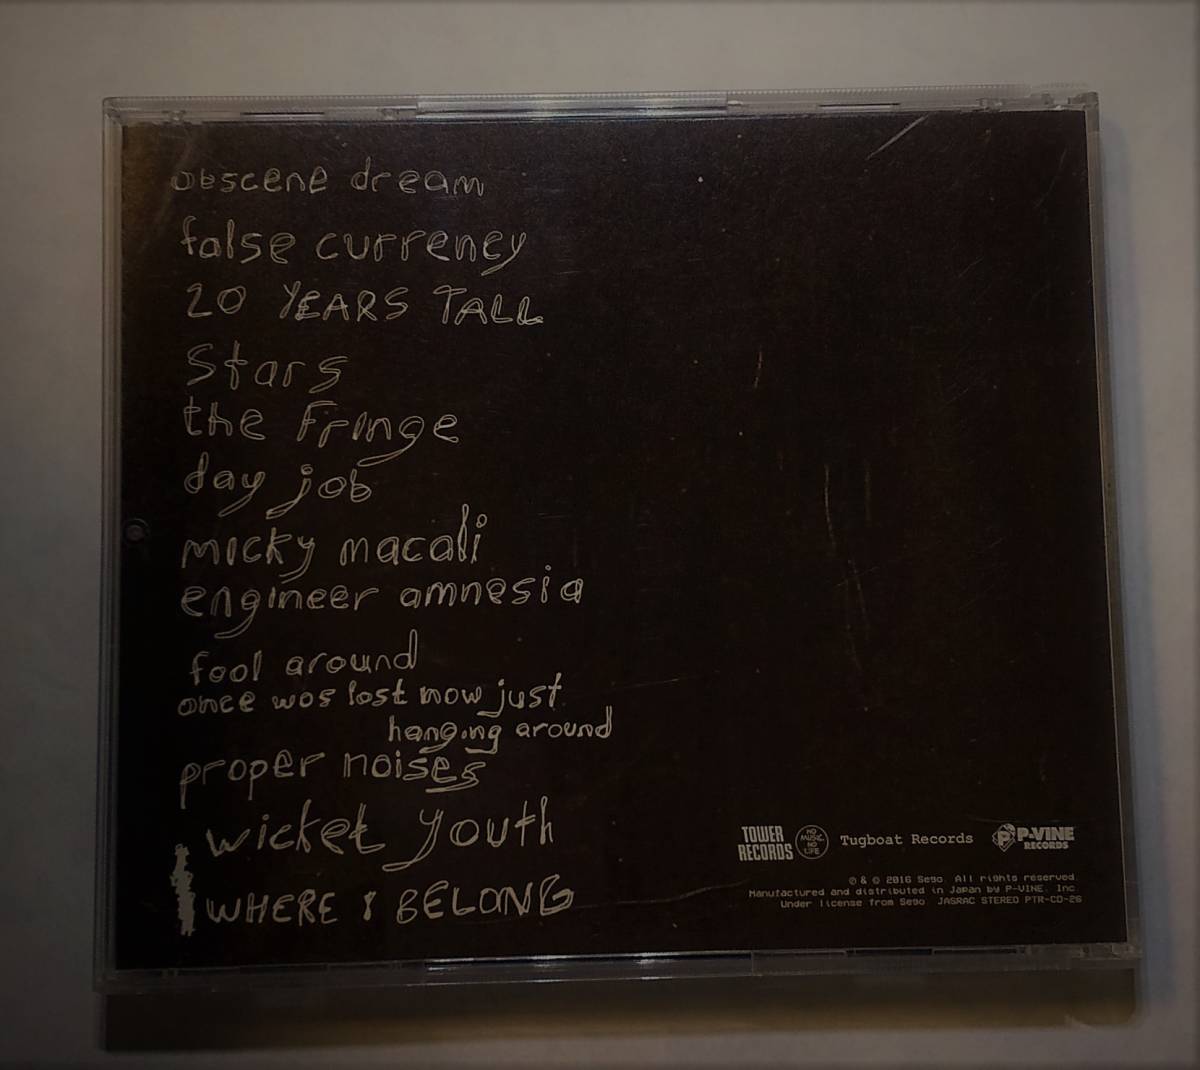 obscene dream
false currency
20 YEARS TALL
Stars
the Fringe
day job
micky macali
engineer amnesia
fool around
once was lost now just
hanging around
proper noises
wicket youth
WHERE I BELONG
TOWER
RECORDS
NO
MUSIC,
NO
LIFE
Tugboat Records
P-VINE
RECORDS
℗ & © 2016 Sego. All rights reserved.
Manufactured and distributed in Japan by P-VINE, Inc.
Under license from Sego. JASRAC STEREO PTR-CD-26